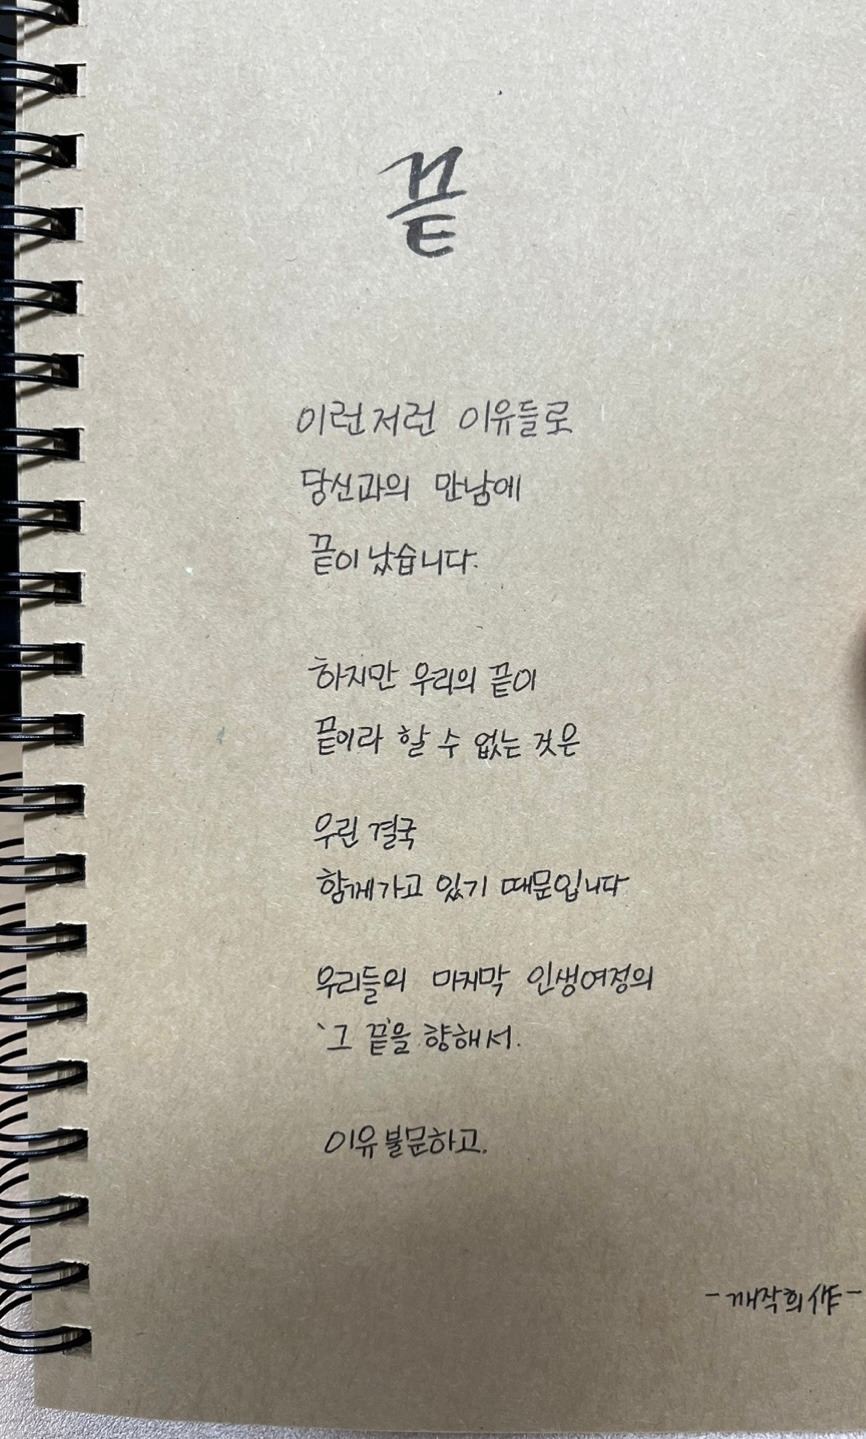 끝
이런저런 이유들로
당신과의 만남에
끝이 났습니다.
하지만 우리의 끝이
끝이라 할 수 없는 것은
우린 결국
함께가고 있기 때문입니다
우리들의 마지막 인생여정의
'그 끝'을 향해서.
이유불문하고.
-깨작희作-